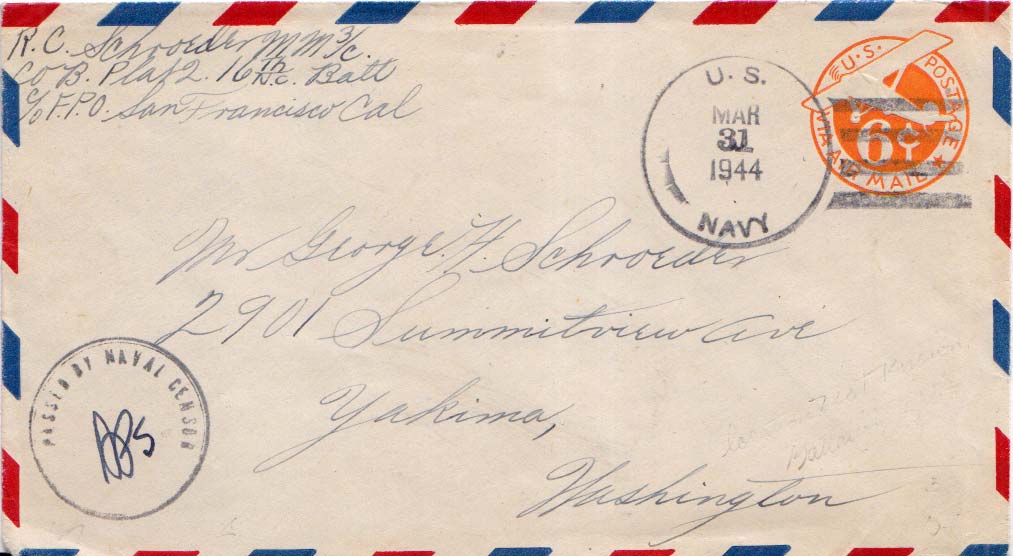 R. C. Schroeder MM 3/c.
Co B. Plat 2. 16th N.C. Batt
c/o F.P.O. San Francisco Cal
U.S.
MAR
31
1944
NAVY
U.S. POSTAGE
6¢
VIA AIR MAIL
Mr George H. Schroeder
2901 Summitview Ave
Yakima,
Washington
PASSED BY NAVAL CENSOR
not known